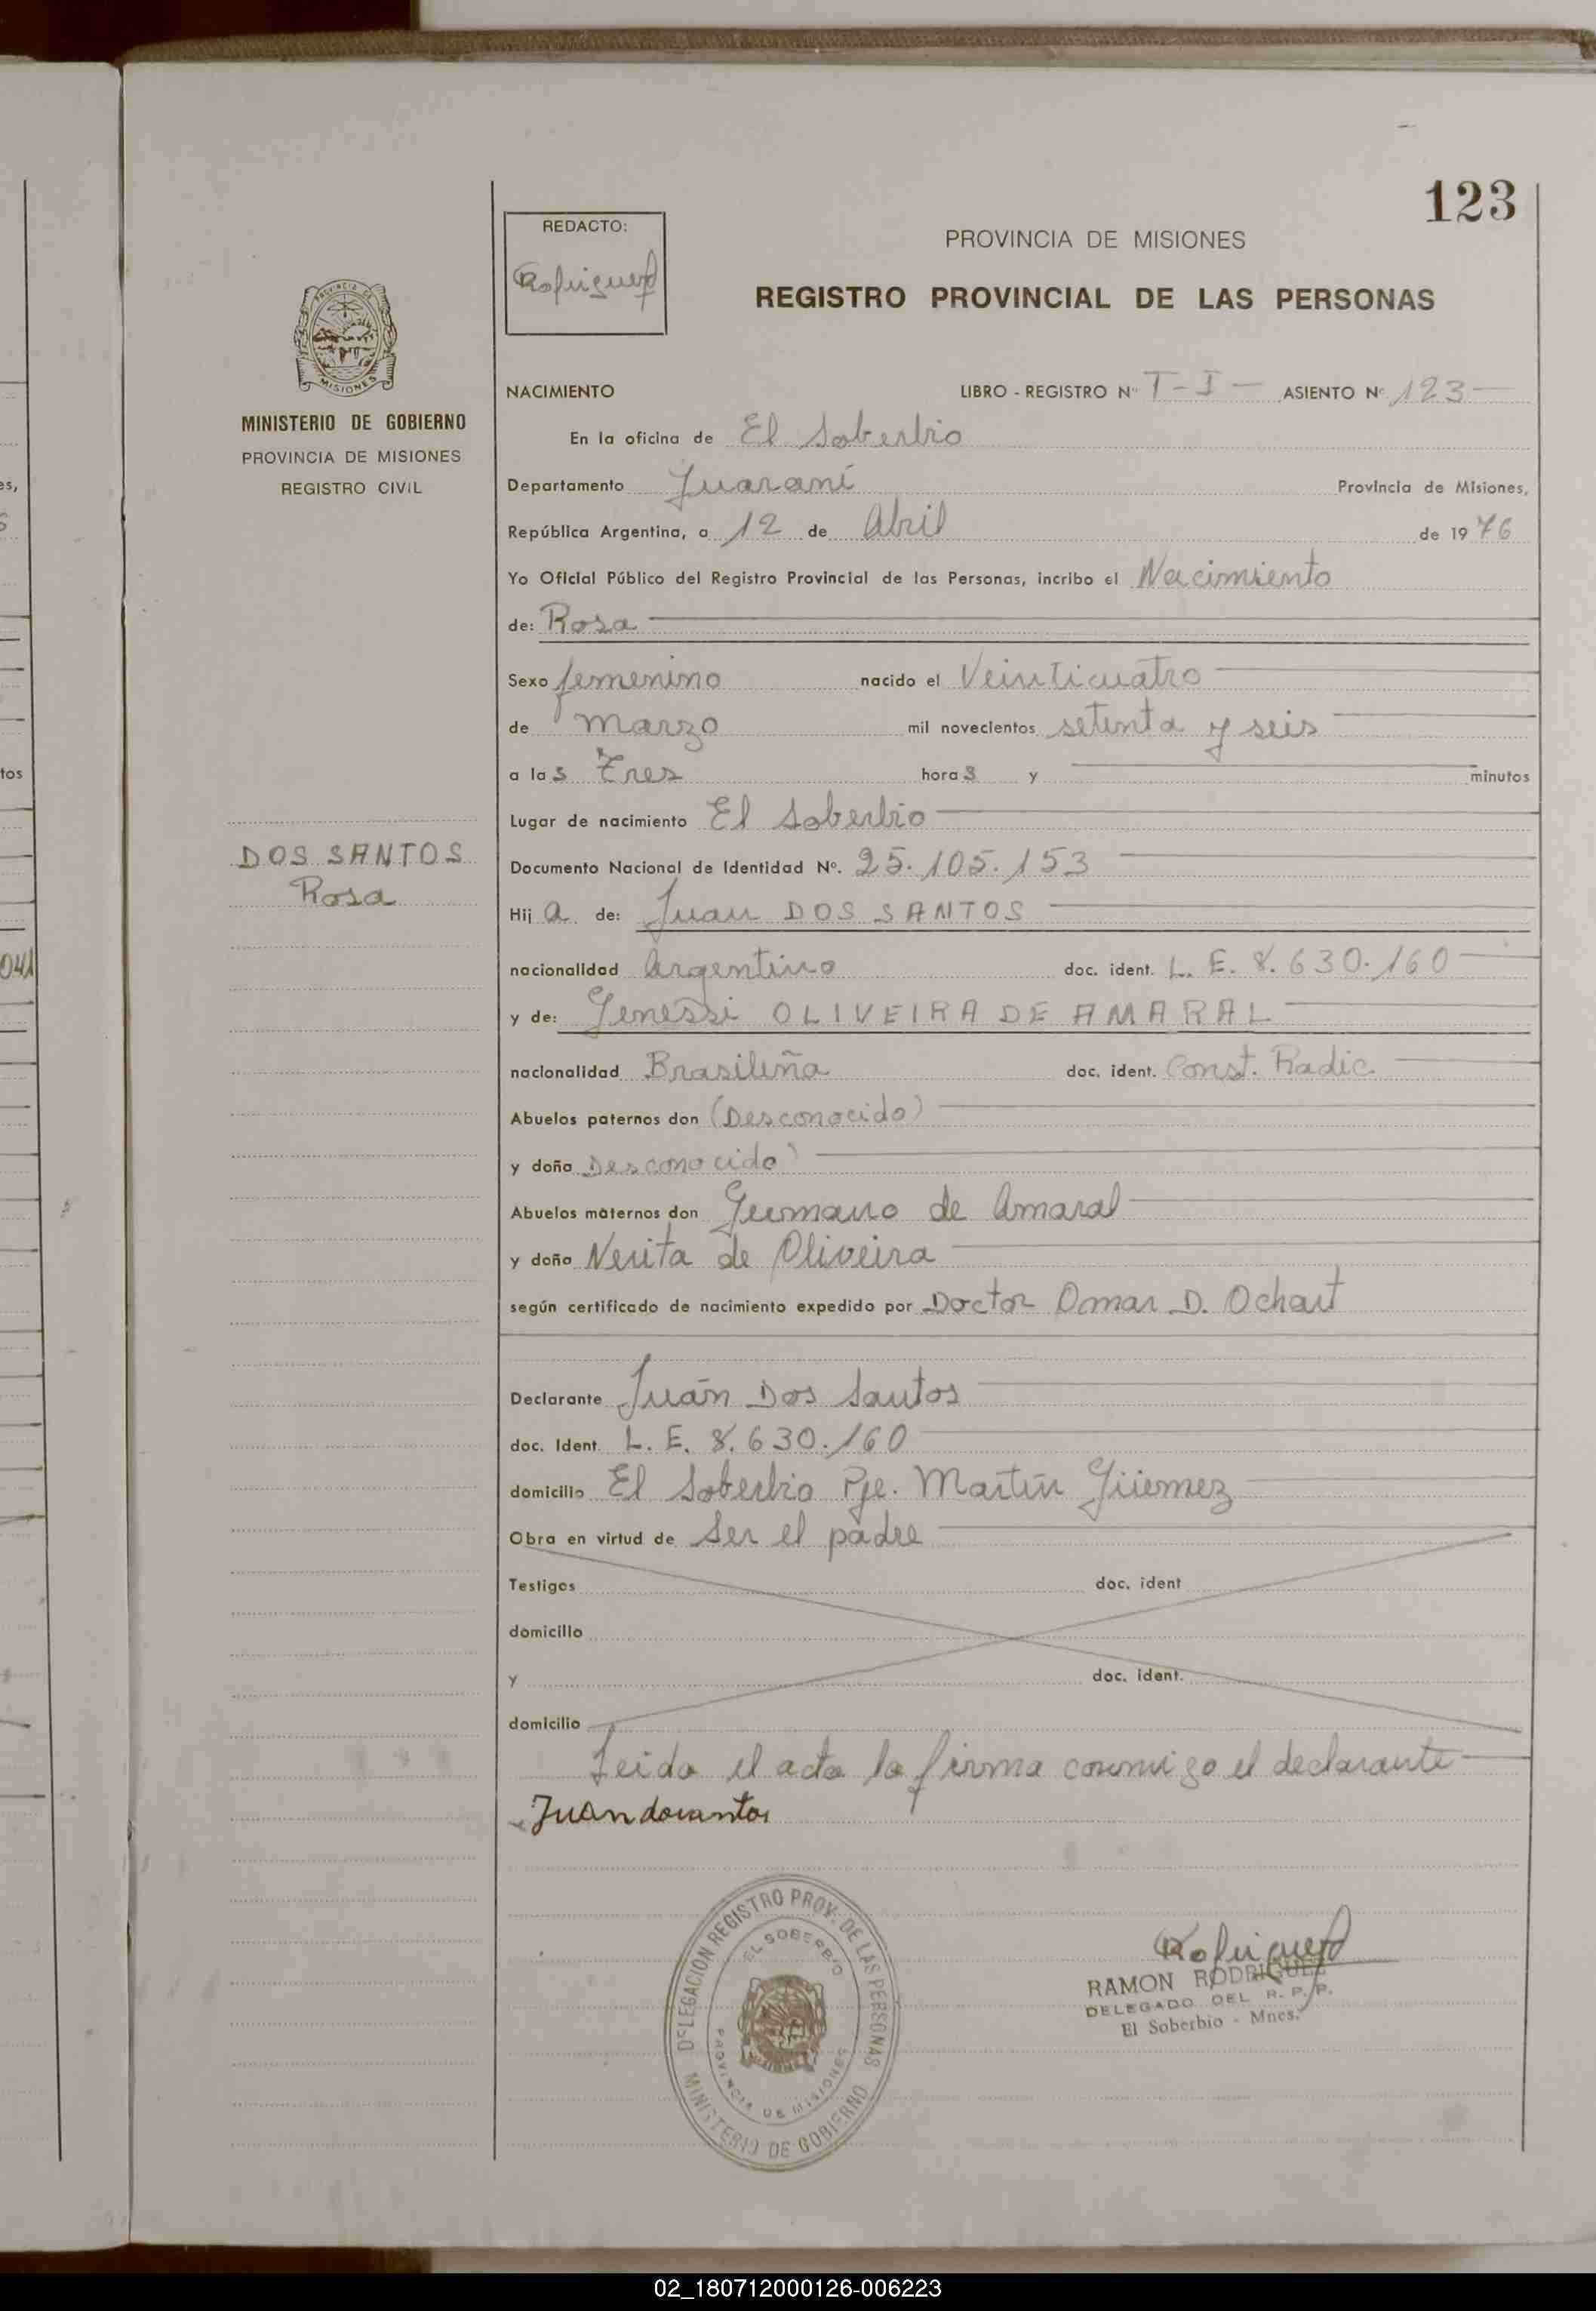 123
REDACTO:
Rodriguez
PROVINCIA DE MISIONES
REGISTRO PROVINCIAL DE LAS PERSONAS
MISIONES
MINISTERIO DE GOBIERNO
PROVINCIA DE MISIONES
REGISTRO CIVIL
NACIMIENTO LIBRO - REGISTRO Nº T-I- ASIENTO Nº 123
En la oficina de El Soberbio
Departamento Guaraní Provincia de Misiones,
República Argentina, a 12 de Abril de 1976
Yo Oficial Público del Registro Provincial de las Personas, incribo el Nacimiento
de: Rosa
Sexo femenino nacido el Veinticuatro
de marzo mil novecientos setenta y seis
a las Tres horas y minutos
Lugar de nacimiento El Soberbio
DOS SANTOS
Rosa
Documento Nacional de Identidad Nº. 25.105.153
Hija de: Juan DOS SANTOS
nacionalidad Argentino doc. ident. L. E. 8.630.160
y de: Genessi OLIVEIRA DE AMARAL
nacionalidad Brasileña doc. ident. Const. Radic
Abuelos paternos don (Desconocido)
y doña Desconocido)
Abuelos maternos don Germano de Amaral
y doña Nerita de Oliveira
según certificado de nacimiento expedido por Doctor Omar D. Ochart
Declarante Juán Dos Santos
doc. Ident. L. E. 8.630.160
domicilio El Soberbio Pje. Martín Güemez
Obra en virtud de Ser el padre
Testigos doc. ident
domicilio
y doc. ident.
domicilio
Leida el acta la firma conmigo el declarante
Juan dosantos
DELEGACION REGISTRO PROV. DE LAS PERSONAS
EL SOBERBIO
PROVINCIA DE MISIONES
MINISTERIO DE GOBIERNO
Rodriguez
RAMON RODRIGUEZ
DELEGADO DEL R. P. P.
El Soberbio - Mnes.
02_180712000126-006223